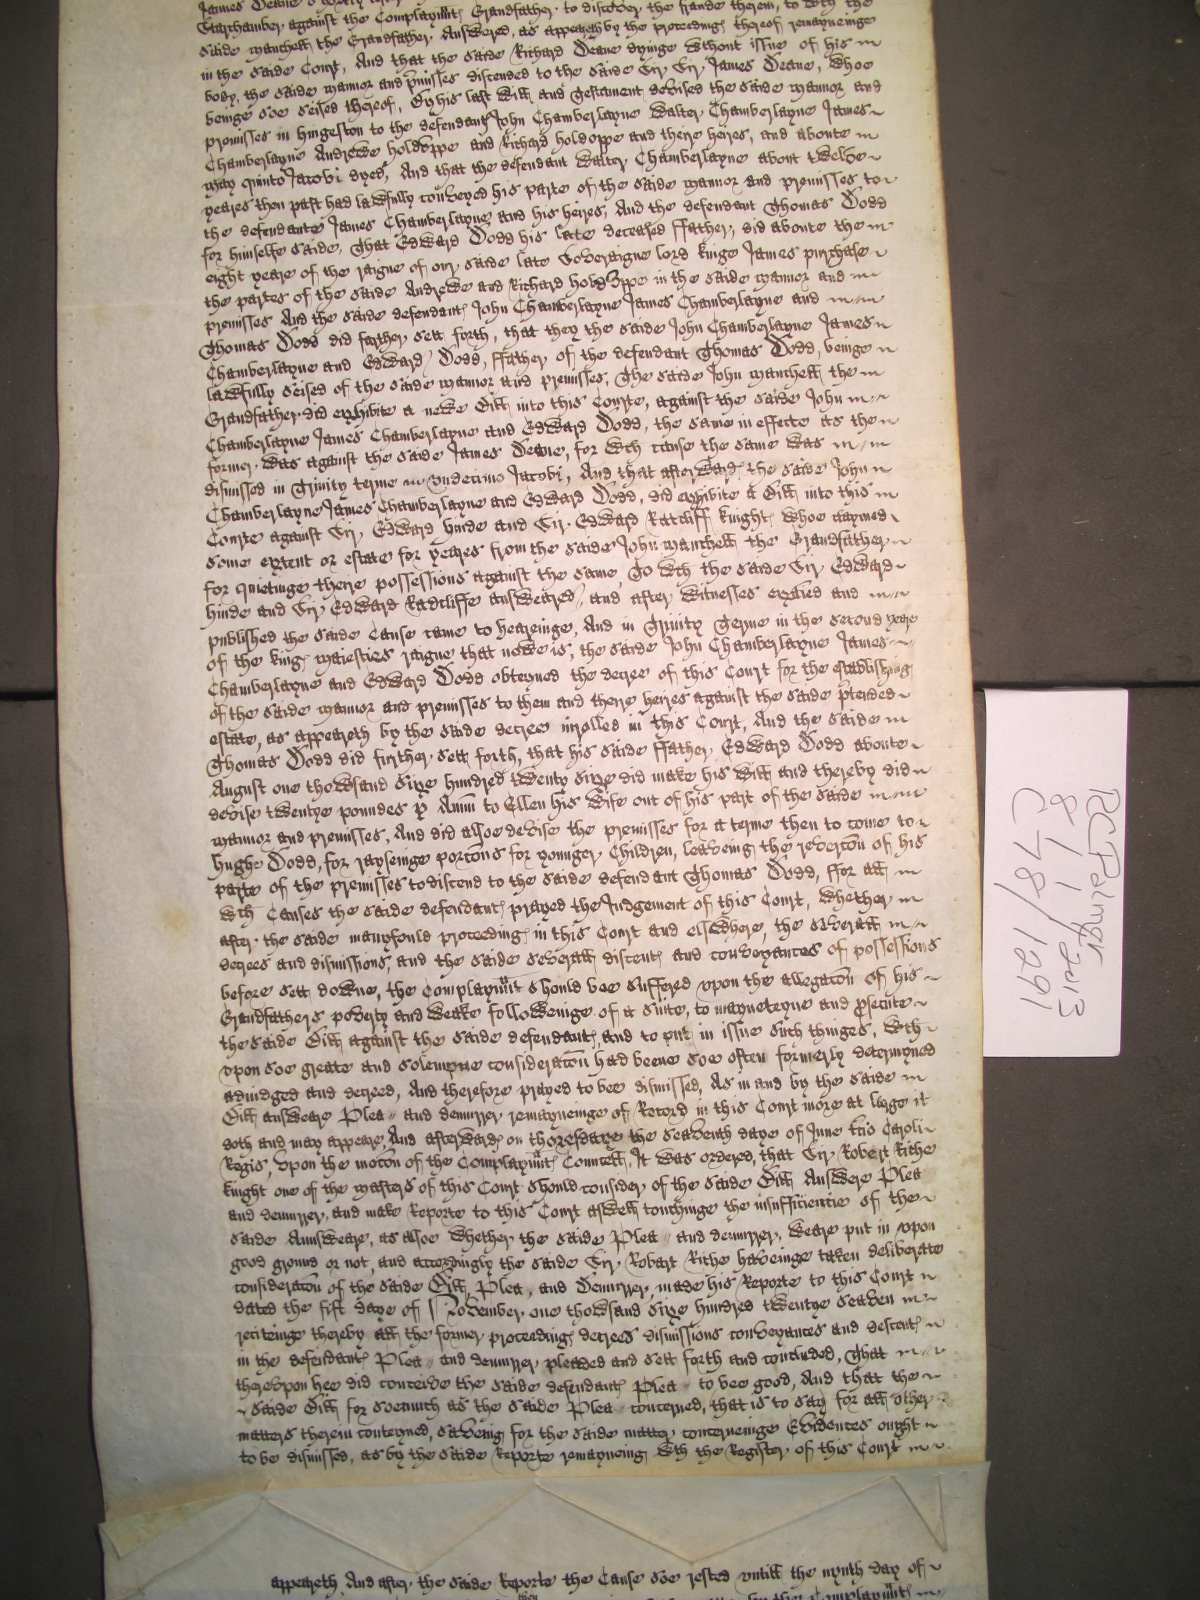 Starchamber against the Complaynts Grandfather to discover the fraude therein, to wch the
saide Manchell the Grandfather Answered, as appeareth by the proceedings thereof remayneinge
in the saide Court, And that the saide Richard Deane dyinge wthout issue of his
body, the saide mannor and pmisses discended to the saide Sir Sir James Deane, whoe
beinge soe seised thereof, By his last Will and Testament devised the saide mannor and
premisses in Hingeston to the defendants John Chamberlayne Walter Chamberlayne James
Chamberlayne Andrewe Holdoppe and Richard Holdoppe and there heires, and aboute
may quinto Jacobi dyed, And that the defendant Walter Chamberlayne about twelve
yeares then past had lawfully conveyed his parte of the saide mannor and premisses to
the defendante James Chamberlayne and his heires, And the defendant Thomas Dodd
for himselfe saide, That Edward Dodd his late deceased ffather, did aboute the
eight yeare of the raigne of our saide late Soveraigne lord kinge James purchase
the partes of the saide Andrewe and Richard Holdoppe in the saide mannor and
premisses And the saide defendants John Chamberlayne James Chamberlayne and
Thomas Dodd did further sett forth, that they the saide John Chamberlayne James
Chamberlayne and Edward Dodd, ffather of the defendant Thomas Dodd, beinge
lawfully seised of the saide mannor and premisses, The saide John Manchell the
Grandfather did exhibite a newe Bill into this Courte, against the saide John
Chamberlayne James Chamberlayne and Edward Dodd, the same in effecte as the
former was against the saide James Deane, for wch cause the same was
dismissed in Trinity terme undecimo Jacobi, And that afterwards the saide John
Chamberlayne James Chamberlayne and Edward Dodd, did exhibite a Bill into this
Courte against Sir Edward Hinde and Sir Edward Ratcliff knights whoe claymed
some extent or estate for yeares from the saide John Manchell the Grandfather
for quietinge there possessions against the same, To wch the saide Sir Edward
Hinde and Sir Edward Radcliffe answeared, and after witnesses exaied and
published the saide Cause came to heareinge, And in Trinity Terme in the second yeare
of the kings maiesties raigne that nowe is, the saide John Chamberlayne James
Chamberlayne and Edward Dodd obteyned the decree of this Court for the establishing
of the saide mannor and premisses to them and there heires against the saide ptended
estate, as appeareth by the saide decree inrolled in this Court, And the saide
Thomas Dodd did further sett forth, that his saide ffather Edward Dodd aboute
August one thowsand Sixe hundred twenty Sixe did make his Will and thereby did
devise twentye poundes p Annu to Ellen his wife out of his part of the saide
mannor and premisses, And did alsoe devise the premisses for a terme then to come to
Hughe Dodd, for rayseinge porcons for younger Children, leaveing the revercon of his
parte of the premisses to discend to the saide defendant Thomas Dodd, ffor all
wch Causes the saide defendants prayed the Judgement of this Court, whether
after the saide manyfould proceedings in this Court and elswhere, the severall
decrees and dismissions, and the saide severall discents and conveyances of possessions
before sett downe, the Complaynnt should bee suffered upon the allegacon of his
Grandfathers poverty and weake followeinge of a suite, to maynteyne and psecute
the saide Bill against the saide defendants, and to putt in issue such thinges, wch
upon soe greate and solempne consideracon had beene soe often formerly determyned
adiudged and decreed, And therefore prayed to bee dismissed, As in and by the saide
Bill answeare Plea and demurrer remayneinge of Record in this Court more at large it
doth and may appeare, And afterwards on thoresdaye the seaventh daye of June tcio Caroli
Regis, upon the mocon of the Complaynnts Councell, It was ordered, that Sir Robert Riche
knight one of the masters of this Court should consider of the saide Bill Answere Plea
and demurrer, and make Reporte to this Court aswell touchinge the insufficiencie of the
saide Answeare, as alsoe whether the saide Plea and demurrer, weare put in upon
good ground or not, and accordingly the saide Sir Robart Riche haveinge taken deliberate
consideracon of the saide Bill, Plea, and Demurrer, made his Reporte to this Court
dated the fift daye of November one thowsand Sixe hundred twentye seaven
reciteinge thereby all the former proceedings decrees dismissions conveyances and descents
in the defendants Plea and demurrer pleaded and sett forth and concluded, That
thereupon hee did conceive the saide defendants Plea to bee good, And that the
saide Bill for soemuch as the saide Plea concerned, that is to say for all other
matters therein conteyned, saveing for the saide matter concerneinge Evidences ought
to be dismissed, as by the saide Reporte remayneing wth the Register of this Court
appeareth And after the saide Reporte the Cause soe rested untill the nynth day of
RC Palmer
8/1/2013
C78/1291